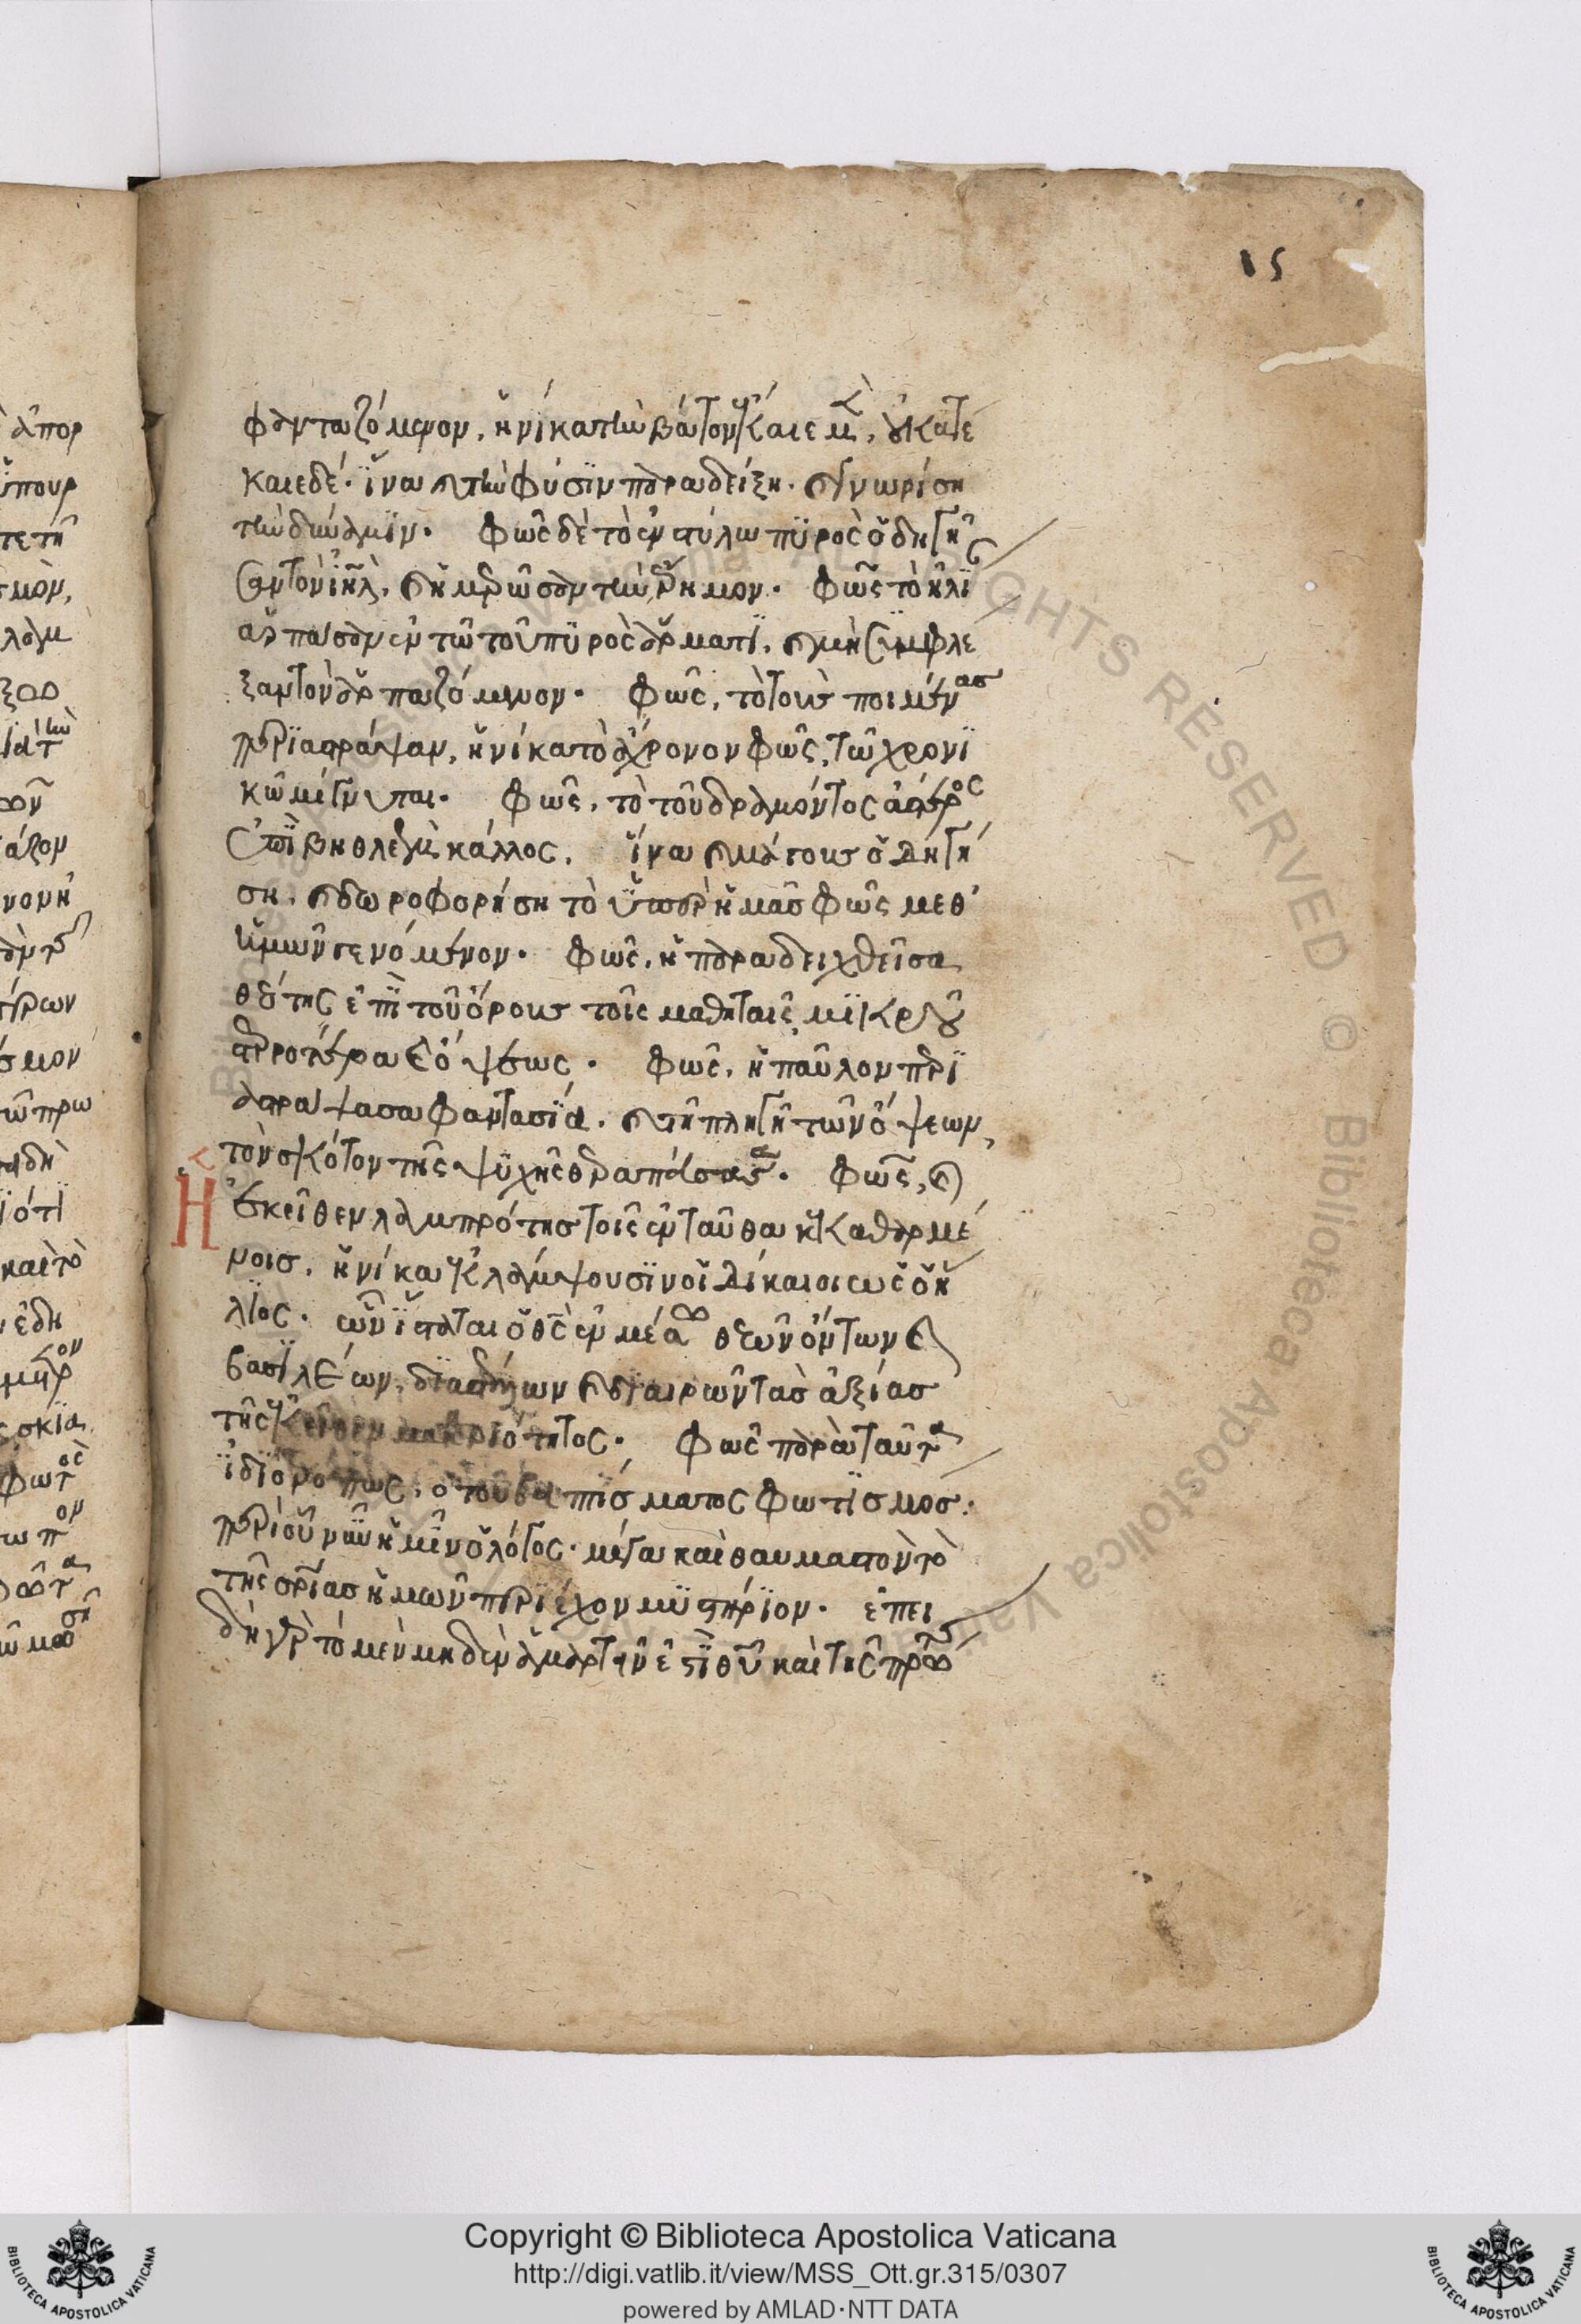 15
φανταζόμενον, ἡνίκα τὴν βάτον ἔκαιε μὲν, οὐ κατέ
καιε δέ· ἵνα καὶ τὴν φύσιν παραδείξη· καὶ γνωρίση
τὴν δύναμιν· φῶς δὲ τὸ ἐν στύλω πυρὸς ὁδηγῆ
σαν τὸν ἰηλ, καὶ ἡμερῶσαν τὴν ἔρημον· φῶς τὸ ἠλί
αν ἁρπάσαν ἐν τῶ τοῦ πυρὸς ἅρματι, καὶ μὴ συμφλέ
ξαν τὸν ἁρπαζόμενον· φῶς, τὸ τοὺς ποιμένας
περιαστράψαν, ἡνίκα τὸ ἄχρονον φῶς, τῶ χρονι
κῶ μίγνυται· φῶς, τὸ τοῦ δραμόντος ἀστέρος
ἐπὶ βηθλεὲμ κάλλος, ἵνα καὶ μάγους ὁδηγή
ση, καὶ δωροφορήση τὸ ὑπὲρ ἡμᾶς φῶς μεθ'
ἡμῶν γενόμενον· φῶς, ἡ παραδειχθεῖσα
θεότης ἐπὶ τοῦ ὄρους τοῖς μαθηταῖς, μικροῦ
στερροτέρα καὶ ὄψεως· φῶς, ἡ παῦλον περι
αστράψασα φαντασία, καὶ τῆ πληγῆ τῶν ὄψεων,
τὸν σκότον τῆς ψυχῆς θεραπεύσασα· φῶς, καὶ
Ἡ ἐκεῖθεν λαμπρότης τοῖς ἐνταῦθα κεκαθαρμέ
νοις, ἡνίκα ἐκλάμψουσιν οἱ δίκαιοι ὡς ὁ ἥ
λιος· ὧν ἵσταται ὁ θς ἐν μέσω θεῶν ὄντων καὶ
βασιλέων, διαστέλλων καὶ διαιρῶν τὰς ἀξίας
τῆς ἐκεῖθεν μακαριότητος· φῶς παρὰ ταῦτα
ἰδιοτρόπως, ὁ τοῦ βαπτίσματος φωτισμός·
περὶ οὗ νῦν ἡμῖν ὁ λόγος· μέγα καὶ θαυμαστὸν τὸ
τῆς σρίας ἡμῶν περιέχον μυστήριον· ἐπει
δὴ γὰρ τὸ μὲν μηδὲν ἁμαρτεῖν ἐστὶ θυ καὶ τῆς πρώτης